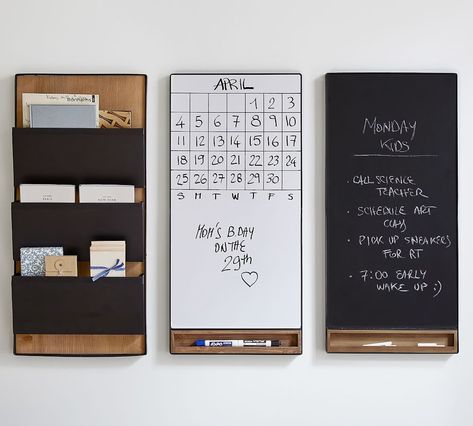 APRIL
1 2 3
4 5 6 7 8 9 10
11 12 13 14 15 16 17
18 19 20 21 22 23 24
25 26 27 28 29 30
S M T W T F S
MOM'S B DAY
ON THE
29th
EXPO
MONDAY
KIDS
• CALL SCIENCE
TEACHER
• SCHEDULE ART
CLAY
• PICK UP SNEAKERS
FOR RT
• 7:00 EARLY
WAKE UP :)